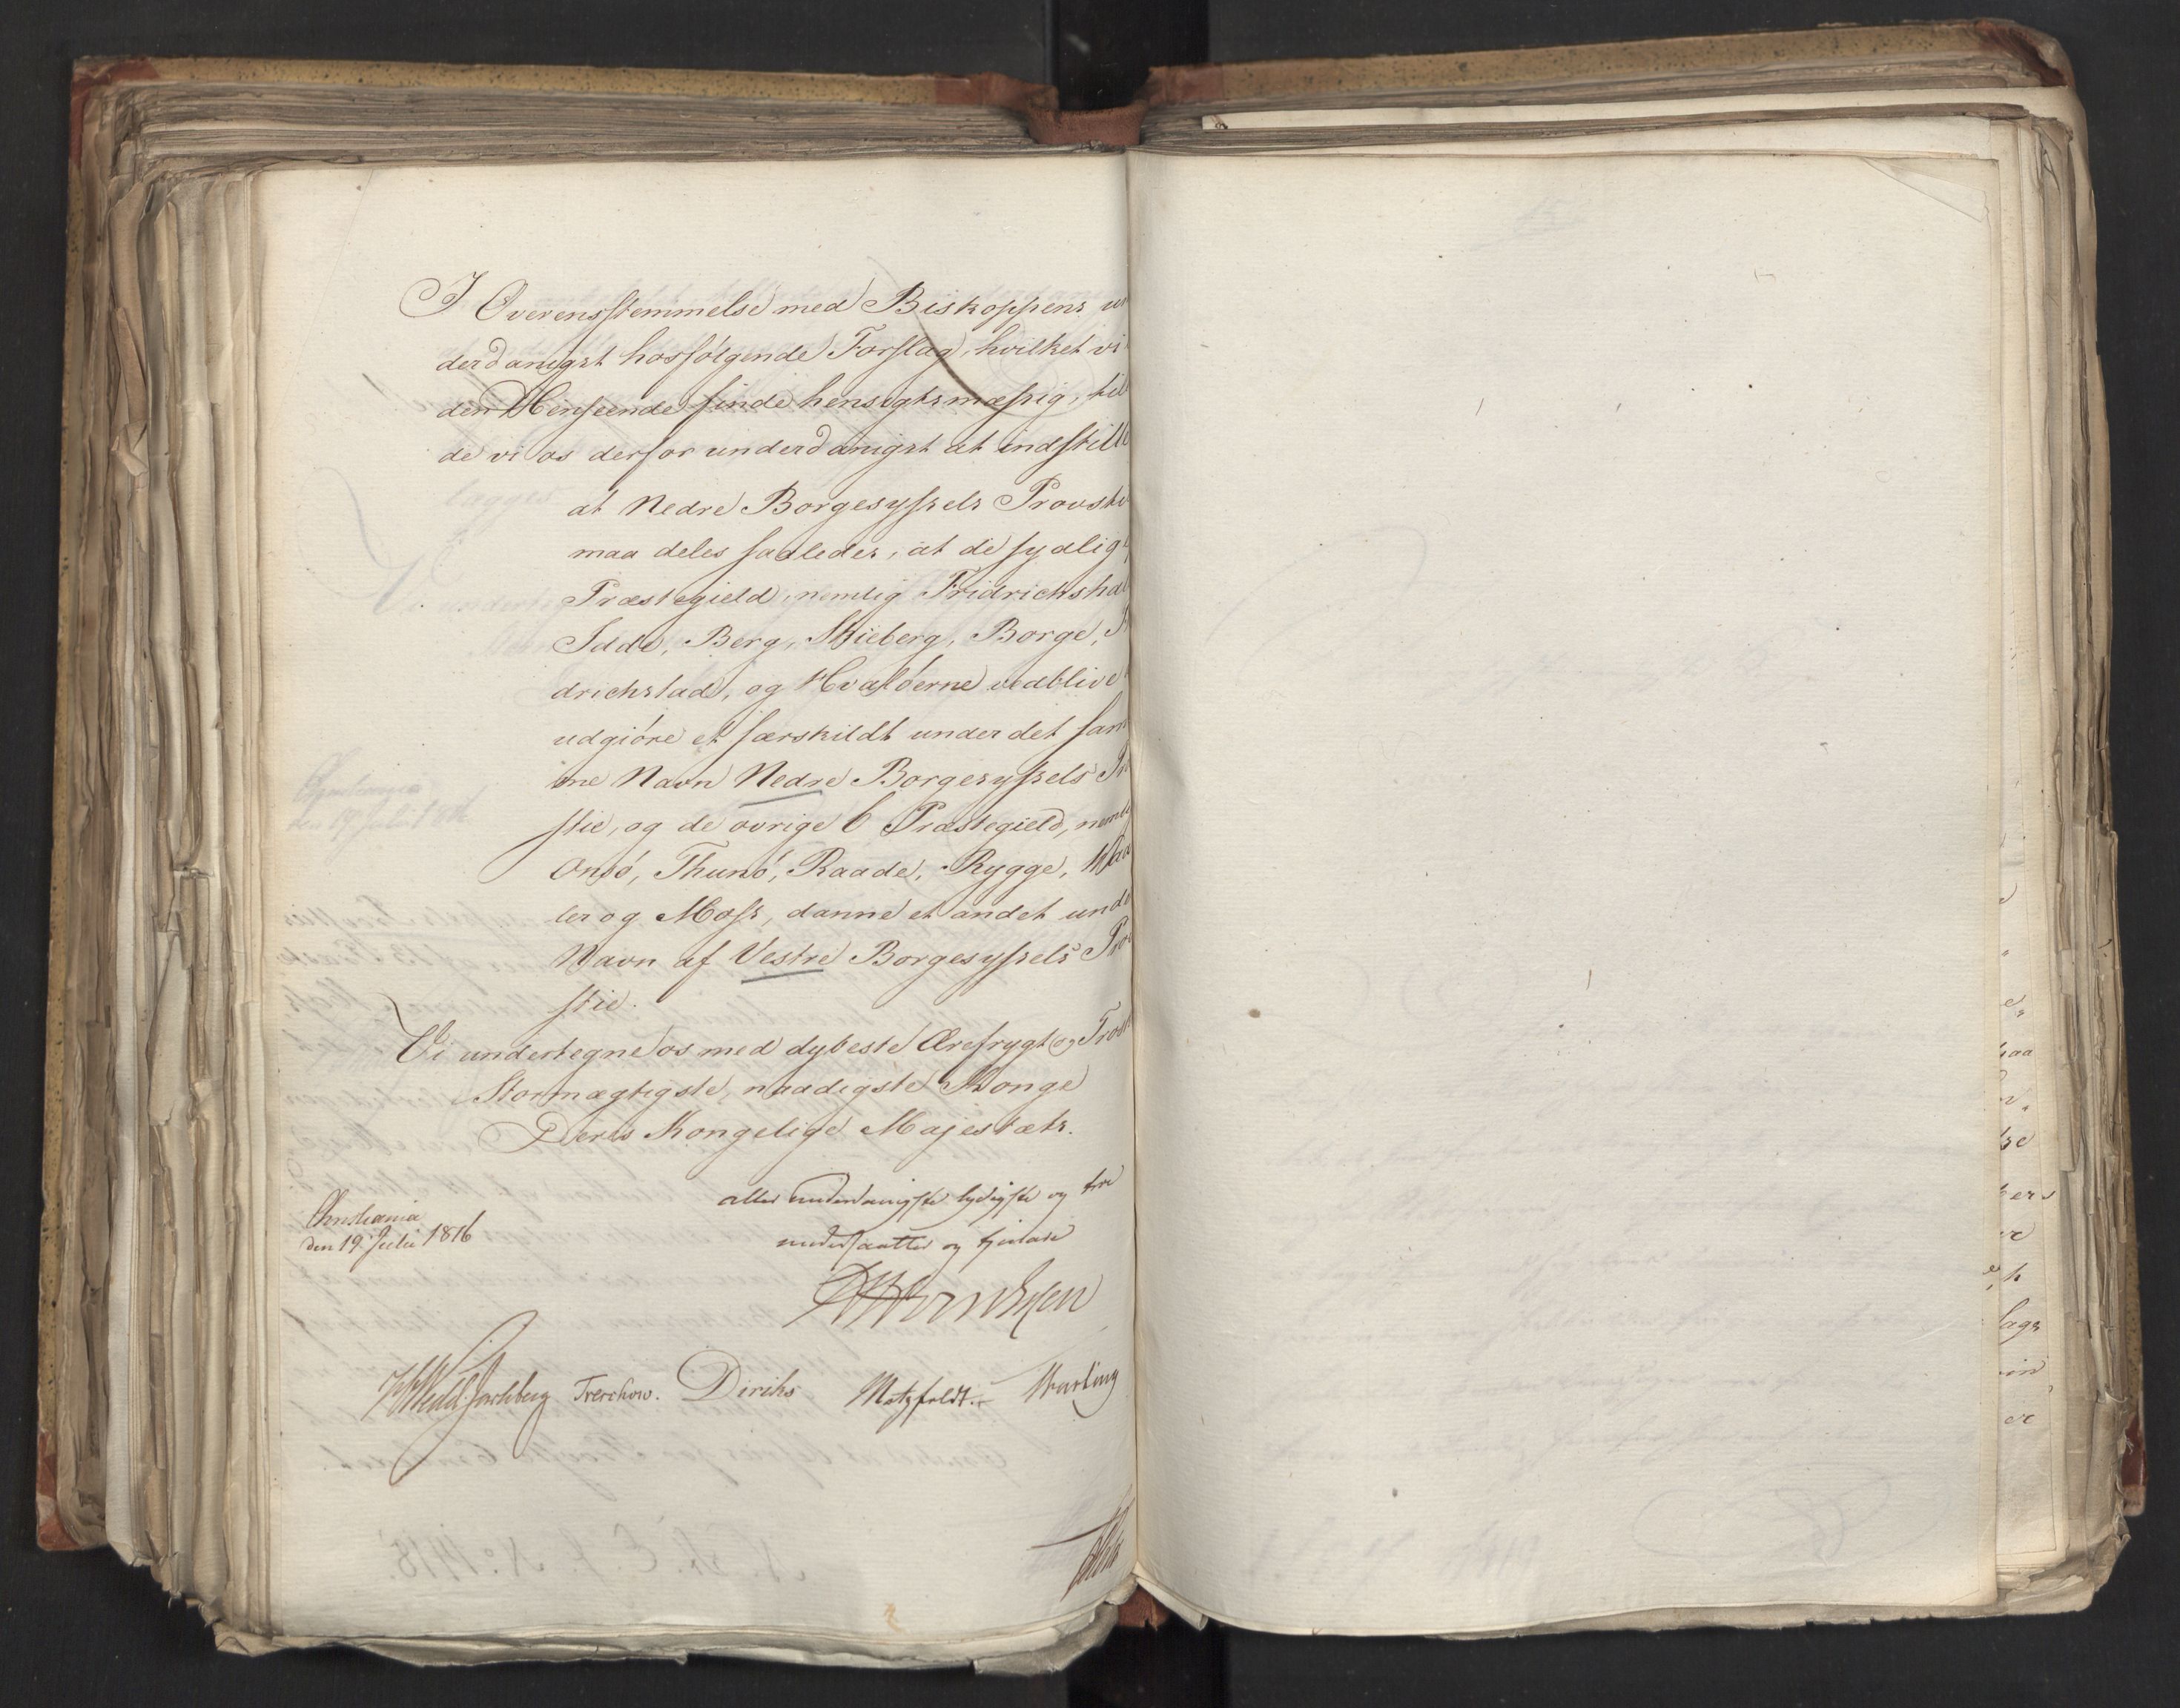 I Overensstemmelse med Biskoppens un
derdanigst hosfølgende Forslag, hvilket vi i
den Henseende finde hensigtsmæssig, til
de vi os derfor underdanigst at indstille
at Nedre Borgesyssels Provsti
maa deles saaledes, at de sydlige
Præstegield, nemlig Fridrichshal
Idde, Berg, Skieberg, Borge, Fr
drichstad, og Hvaløerne vedblive
udgiöre et særskildt under det sam
me Navn Nedre Borgesyssels Pro
stie, og de övrige 6 Præstegield, nemlig
Onsö, Thunö, Raade, Rygge, Waa
ler og Moss, danne et andet unde
Navn af Vestre Borgesyssels Pro
stie.
Vi undertegne os med dybeste Ærefrygt og Trosk
Stormægtigste, naadigste Konge
Deres Kongelige Majestæts.
aller underdanigste lydigste og troe
undersaatter og tjenare
Christiania
den 19 Julii 1816
Treschow. Diriks Motzfeldt.